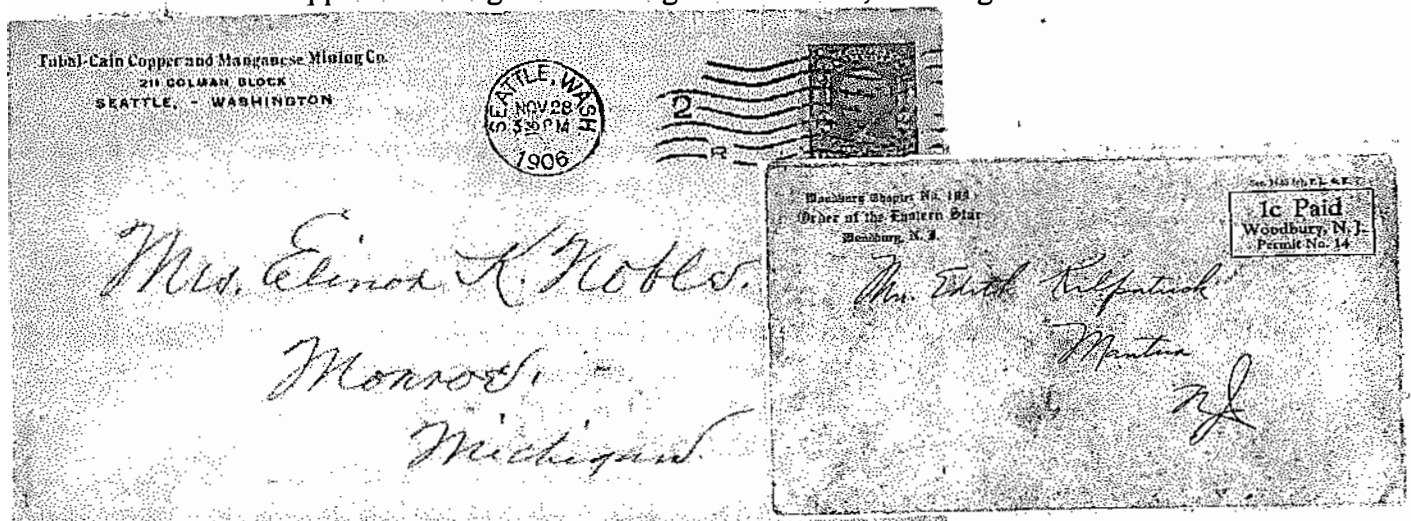 Tubal-Cain Copper and Manganese Mining Co.
211 COLMAN BLOCK
SEATTLE, - WASHINGTON
SEATTLE, WASH
NOV 28
PM
1906
2
R
Mrs. Elinor K. Nobles.
Monroe.
Michigan.
Woodbury Chapter No.
Order of the Eastern Star
Woodbury, N. J.
1c Paid
Woodbury, N. J.
Permit No. 14
Mrs. Edith Kilpatrick
Mantua
NJ